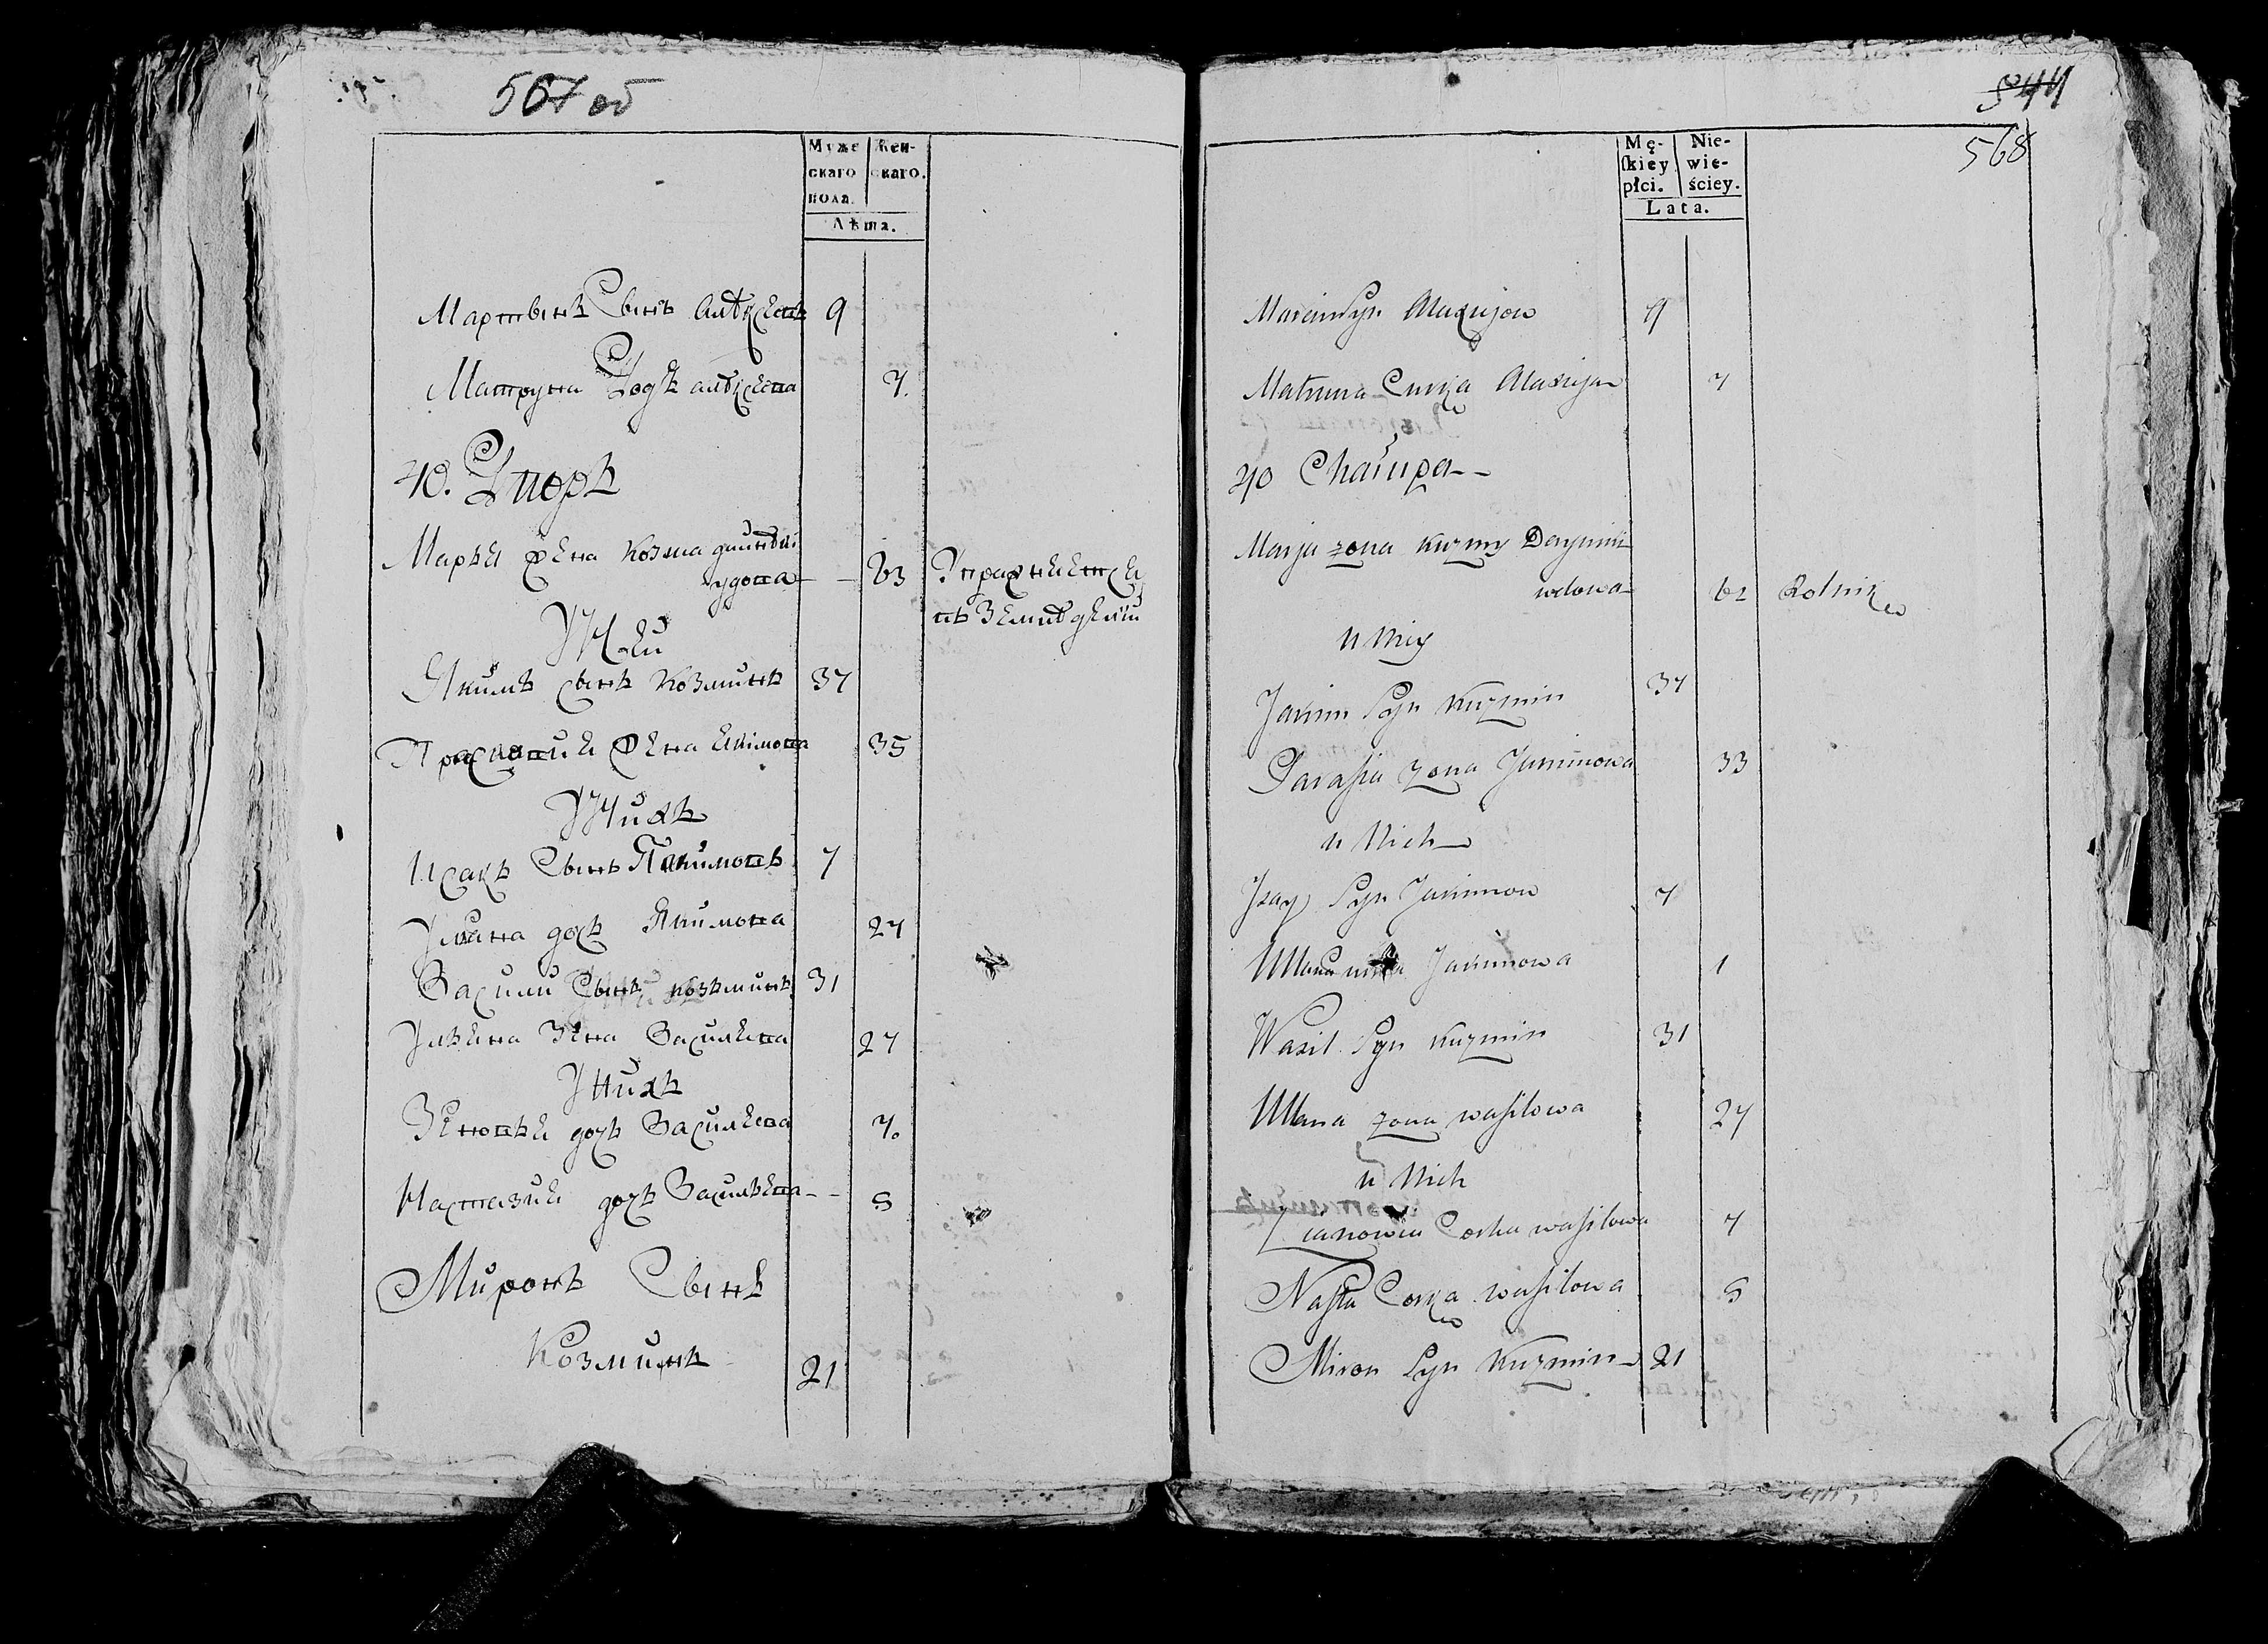 567 об
Муже
скаго
пола.
Жен-
скаго.
Лѣта.
Мартынъ Сынъ
9
Матруна
7.
40. Дворъ
Марья жена Козма
удова
63
Упражняется
въ Земледелии
У Ней
Якимъ сынъ Козминъ 37
жена Якимова 35
У Нихъ
Исакъ Сынъ Якимовъ 7
дочь Якимова 27
Васили Сынъ Козминъ 31
Ульяна Жена Васильева 27
У Нихъ
дочь Васильева 7.
Настазия дочь Васильева - - 5
Миронъ Сынъ
Козминъ 21
544
568
Mę-
skiey
płci.
Nie-
wie-
ściey.
Lata.
Marcin Syn Alaxiejow 9
Matruna Curka 7
40 Chałupa - -
Marja zona Kuzmy
wdowa 62 Rolnik
u Niey
Jakim Syn Kuzmin 37
Parasia zona Jakimowa 33
u Nich
Izay Syn Jakimow 7
Ullana Jakimowa 1
Wasil Syn Kuzmin 31
Ullana zona wasilowa 27
u Nich
Corka wasilowa 7
Nasta Corka wasilowa 5
Miron Syn Kuzmin 21